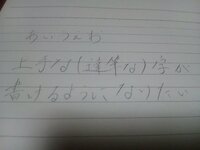 あいうえお
上手な(達筆な)字が
書けるようになりたい